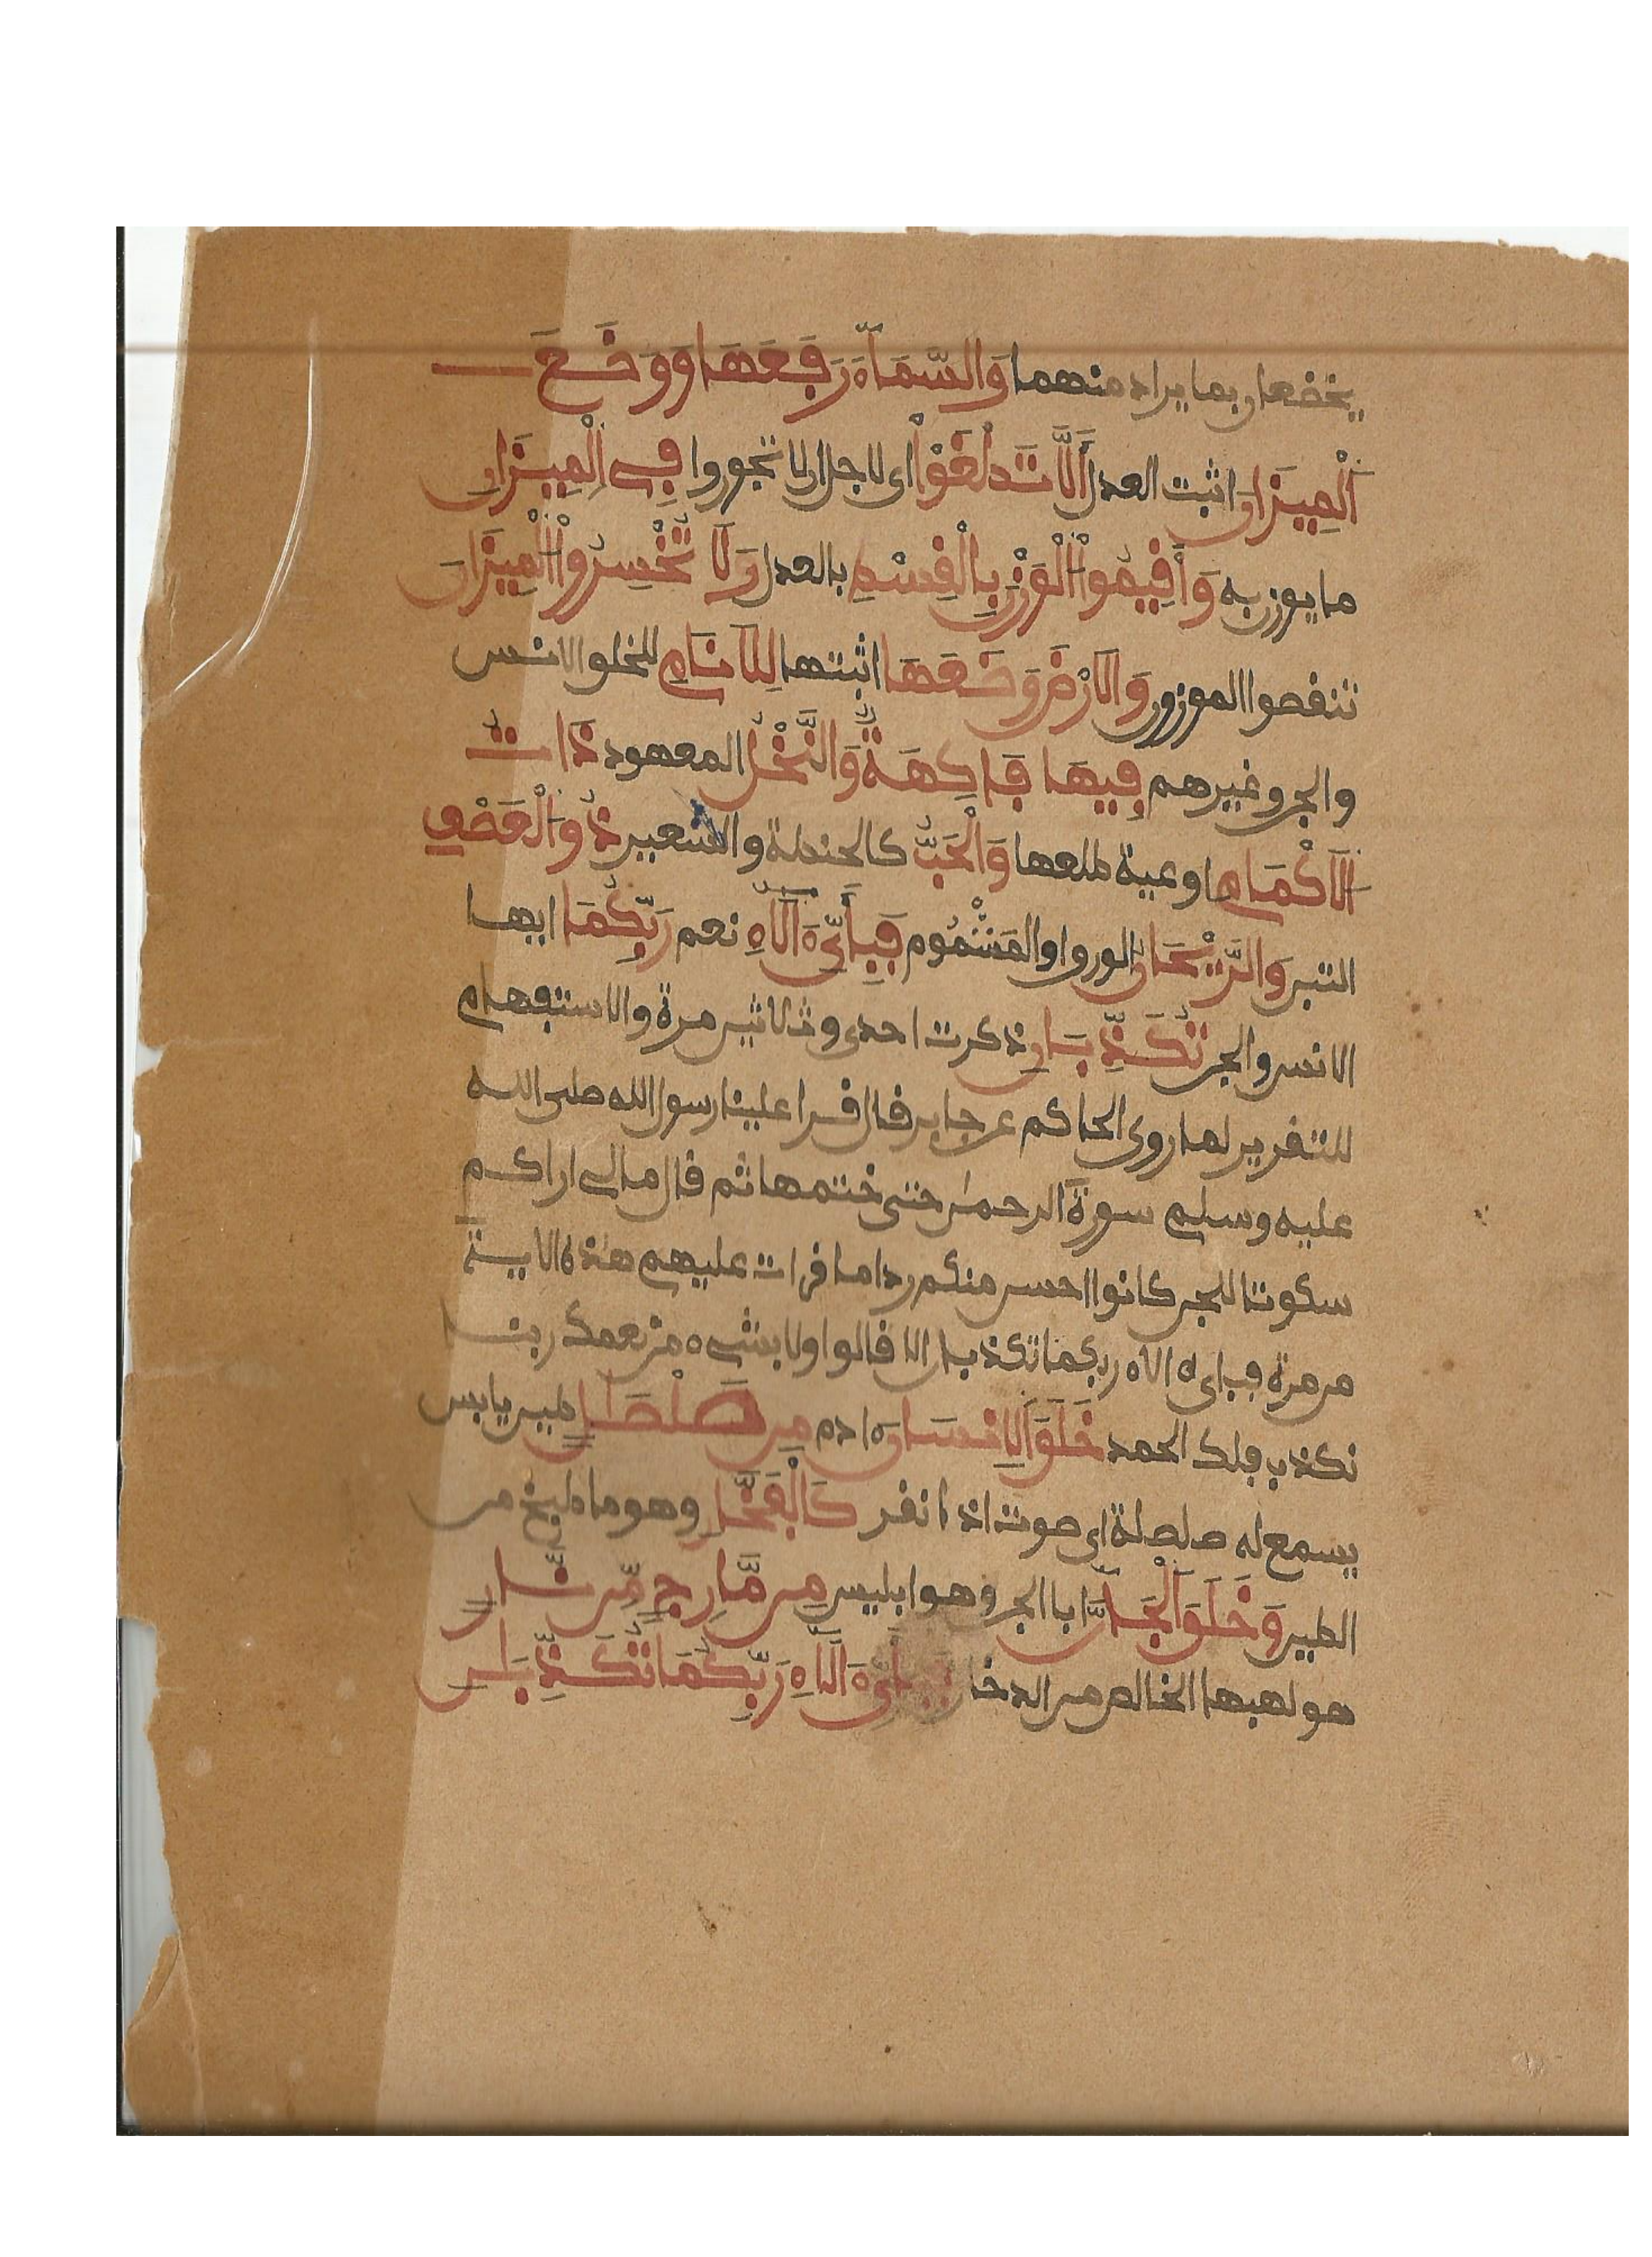 يخضعان بما يراد منهما وَالسَّمَآءَ رَفَعَهَا وَوَضَعَ
اَلْمِيزَانَ اثبت العدل أَلَّا تَطْغَوْاْ اى لاجل ان لا تجوروا فِى اِلْمِيزَانِ
ما يوزن به وَأَقِيمُواْ اُلْوَزْنَ بِالْقِسْطِ بالعدل وَلَا تُخْسِرُواْ اُلْمِيزَانَ
تنقصوا الموزون وَالَارْضَ وَضَعَهَا اثبتها لِلَانَامِ للخلق الانس
والجن وغيرهم فِيهَا فَاكِهَةٌ وَالنَّخْلُ المعهود ذَاتُ
اُلَاكْمَامِ اوعية طلعها وَالْحَبُّ كالحنطة والشعير ذُو اُلْعَصْفِ
التبن وَالرَّيْحَانُ الورق او المشموم فَبِأَىِّ ءَالَآءِ نعم رَبِّكُمَا ايها
الانس والجن تُكَذِّبَانِ ذكرت احدى وثلاثين مرة والاستفهام
للتقرير لما روى الحاكم عن جابر قال قرا علينا رسول الله صلى الله
عليه وسلم سورة الرحمن حتى ختمها ثم قال مالى اراكم
سكوتا للجن كانوا احسن منكم ردا ما قرات عليهم هذه الاية
من مرة فباى ءالاء ربكما تكذبان الا قالوا ولا بشىء من نعمك ربنا
نكذب فلك الحمد خَلَقَ اَلِانسَانَ ءادم مِن صَلْصَالٍ طين يابس
يسمع له صلصلة اى صوت اذا نقر كَالْفَخَّارِ وهو ما طبخ من
الطين وَخَلَقَ اَلْجَآنَّ ابا الجن وهو ابليس مِن مَّارِجٍ مِّن نَّارٍ
هو لهبها الخالص من الدخان فَبِأَىِّ ءَالَآءِ رَبِّكُمَا تُكَذِّبَانِ